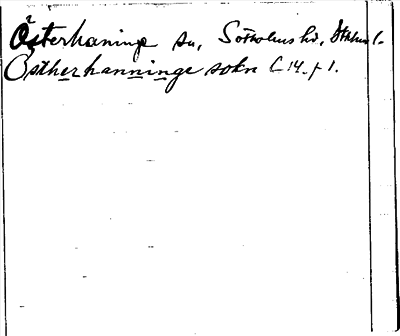 Österhaninge sn, Sotholms hd, Sthlms l.
Östherhanninge sokn C 14. f 1.